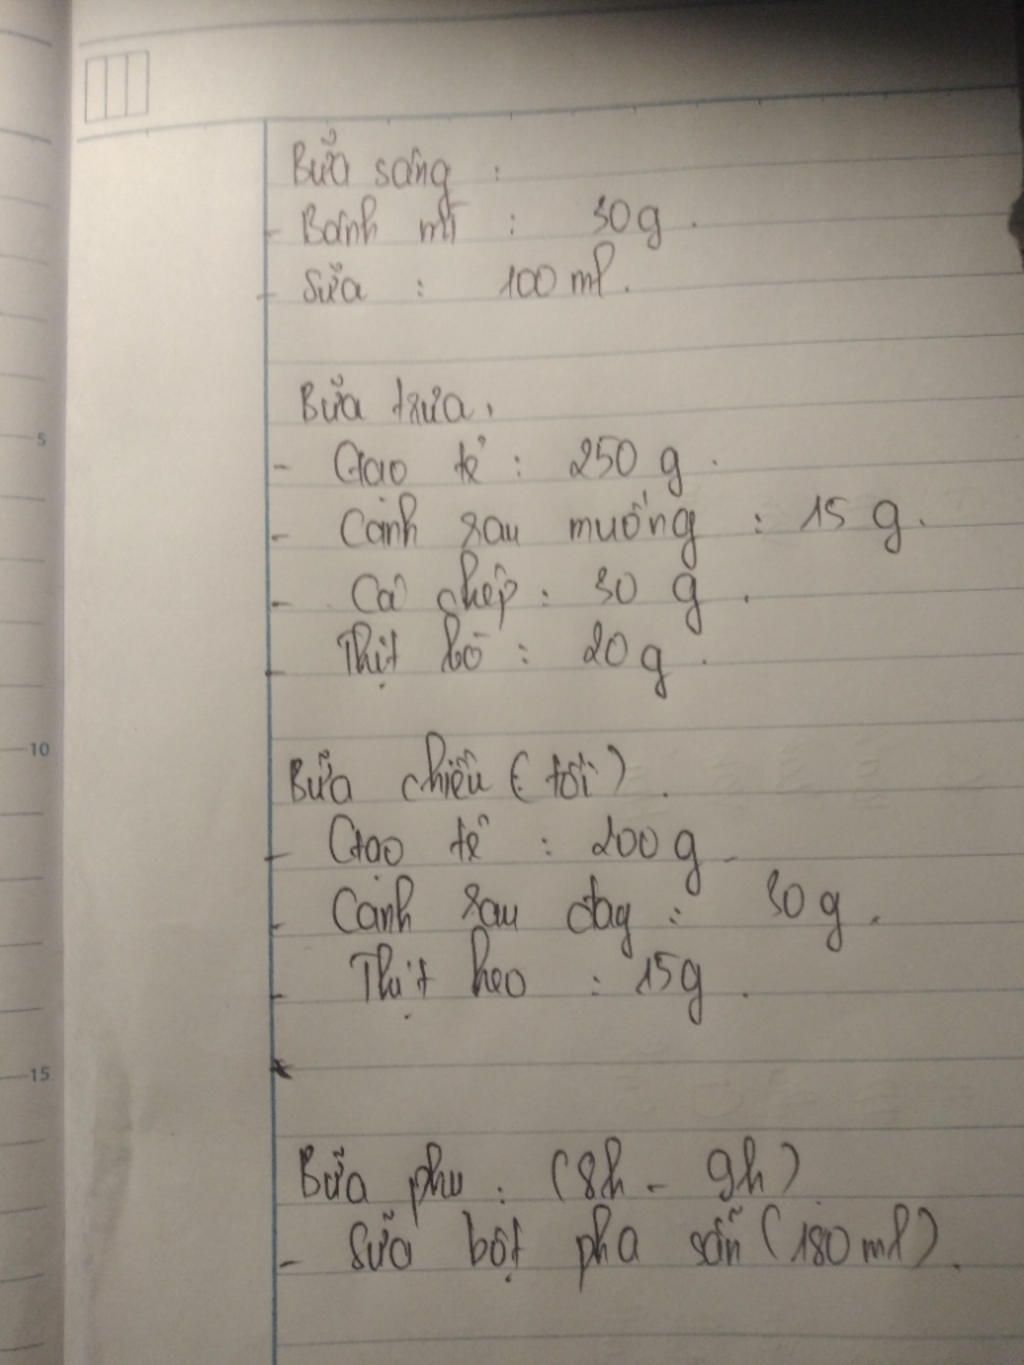 Bữa sáng :
- Bánh mì : 30g.
- Sữa : 100 ml.
Bữa trưa,
5
- Gạo tẻ : 250 g.
- Canh rau muống : 15 g.
- Cá chép : 30 g.
- Thịt bò : 20g.
10
Bữa chiều (tối).
- Gạo tẻ : 200g
- Canh rau đay : 30g.
- Thịt heo : 15g.
15
Bữa phụ : (8h - 9h)
- Sữa bột pha sẵn (180ml).